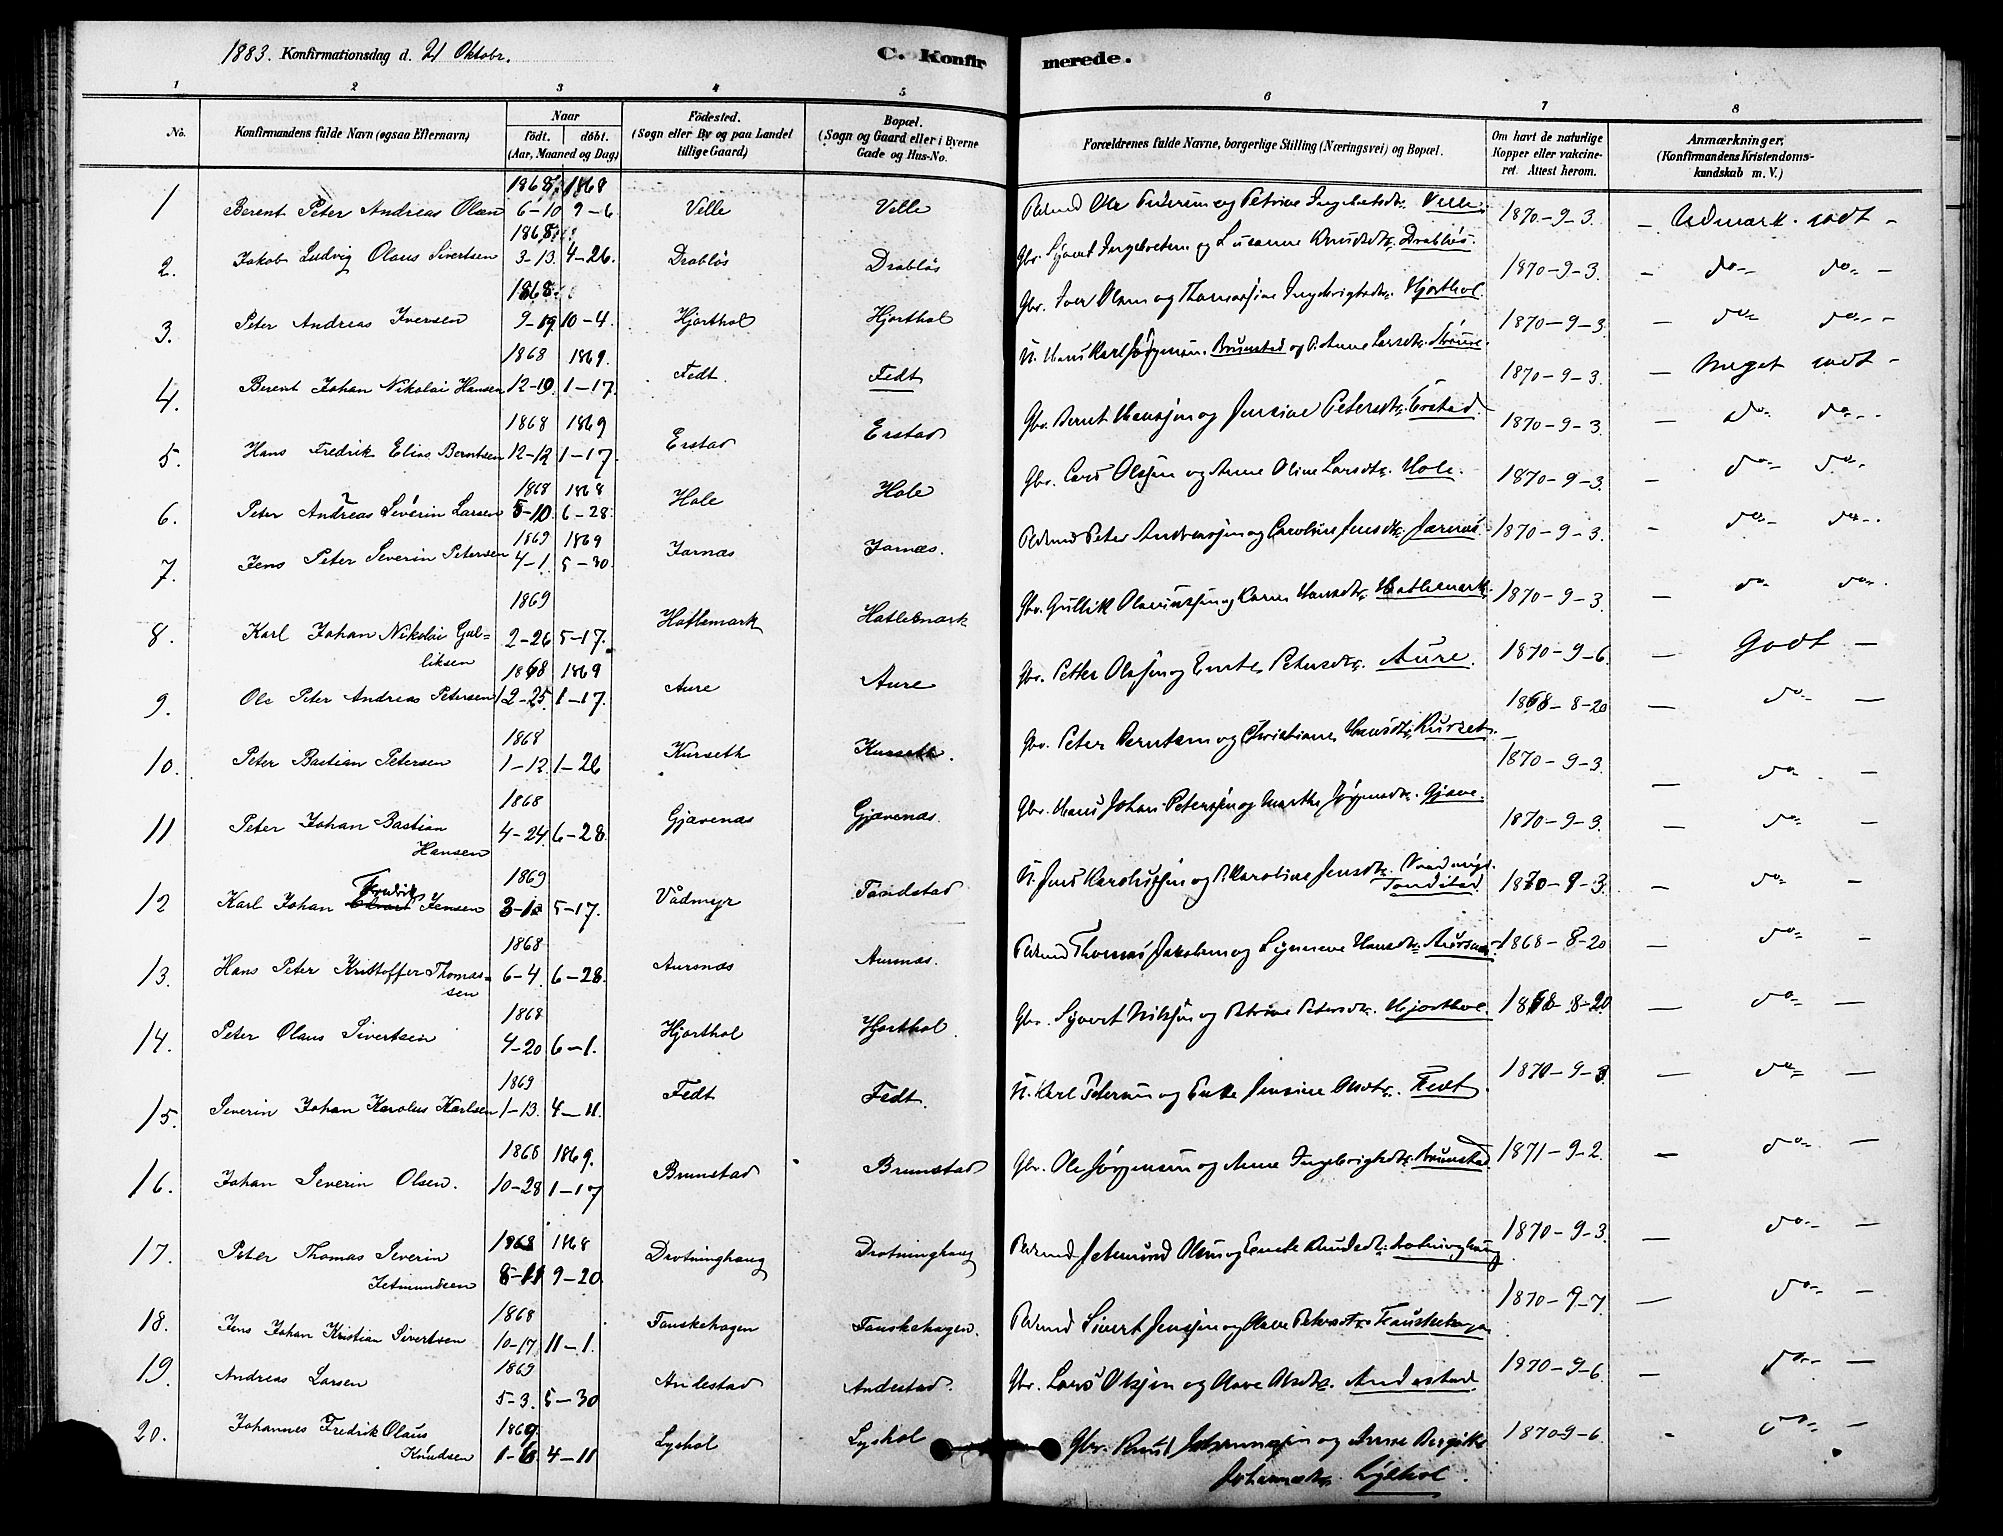 1883. Konfirmationsdag d. 21 Oktobr.
C. Konfirmerede.
1 2 3 4 5 6 7 8
No.
Konfirmandens fulde Navn (ogsaa Efternavn)
Naar
födt. döbt.
(Aar, Maaned og Dag)
Födested.
(Sogn eller By og paa Landet
tillige Gaard)
Bopæl.
(Sogn og Gaard eller i Byerne
Gade og Hus-No.
Forældrenes fulde Navne, borgerlige Stilling (Næringsvei) og Bopæl.
Om havt de naturlige
Kopper eller vakcine-
ret. Attest herom.
Anmærkninger.
(Konfirmandens Kristendoms-
kundskab m. V.)
1868 1868
1 Berent Peter Andreas Olsen 6-10 9-6 Velle Velle Ole Petersen og Petrine Velle. 1870-9-3. - Udmærk. godt -
1868
2. Jakob Ludvig Olaus Sivertsen 3-13. 4-26. Drabløs Drabløs Gbr. Syvert Ingebretsen og Susanne Knudsdtr. Drabløs. 1870-9-3. - do- do- -
1868
3. Peter Andreas Iversen 9-19 10-4. Hjorthol Hjorthol Gbr. Iver Olsen og Thomasine Hjorthol. 1870-9-3. - do- do- -
1868 1869.
4. Berent Johan Nikolai Hansen 12-10 1-17. Fedt. Fedt U. Hans Karl Jørgensen. Brunstad og P. Anne Larsdtr. 1870-9-3. - Meget godt -
1868 1869
5. Hans Fredrik Elias Berntsen 12-12 1-17. Erstad Erstad Gbr. Bernt Hanssen og Jensine Petersdtr. Erstad. 1870-9-3. - do- do-
1868 1868
6. Peter Andreas Severin Larsen 5-10. 6-28. Hole Hole Gbr. Lars Olssen og Anne Oline Larsdtr. Hole. 1870-9-3. - do- do-
1869 1869
7. Jens Peter Severin Petersen 4-1. 5-30. Jarnæs Jarnæs. Peter Andreassen og Caroline Jensdtr. Jærnæs. 1870-9-3. - do- do-
1869
8. Karl Johan Nikolai Gul- 2-26 5-17. Hatlemark Hatlemark Gbr. Gullik og Karen Hansdtr. Hatlemark. 1870-9-3. - do do-
liksen
1868 1869
9. Ole Peter Andreas Petersen 12-25. 1-17. Aure Aure Gbr. Petter Olssen og Petersdtr. Aure. 1870-9-6 - Godt -
1868
10. Peter Bastian Petersen 1-12. 1-26 Kurseth Kurseth. Gbr. Peter Berntsen og Christiane Hansdtr. Kurset. 1868-8-20 - do- -
1868
11 Peter Johan Bastian 4-24. 6-28 Gjævenæs Gjævenæs. Gbr. Hans Johan Peterssen og Marthe Jørgensdtr. 1870-9-3. - do- -
Hansen
1869
12 Karl Johan Fredrik Jensen 3-12 5-17. Vådmyr Tandstad U. Jens Karolussen og P. Karoline Jensdtr. Tandstad. 1870-9-3. - do- -
1868
13. Hans Peter Kristoffer Thomas- 6-4. 6-28. Aursnæs Aursnæs. Thomas Jakobsen og Synneve Hansdtr. Aursnæs. 1868-8-20 - do- -
sen
1868
14. Peter Olaus Sivertsen 4-20 6-1. Hjorthol Hjorthol. Gbr. Syvert Nilssen og Petrine Petersdtr. Hjorthol. 1868-8-20. - do- -
1869
15. Severin Johan Karolus Karlsen 1-13. 4-11. Fedt Fedt. U. Karl Petersen og Jensine Olsdtr. Fedt. 1870-9-3. - do- -
1868 1869.
16. Johan Severin Olsen. 10-28 1-17 Brunstad Brunstad Gbr. Ole Jørgensen og Anne Ingebrigtsdtr. Brunstad. 1871-9-2. - do- -
1868 1868
17. Peter Thomas Severin 8-11 9-20. Drotninghaug Drotninghaug Jetmund Olsen og Knudsdtr. 1870-9-3. - do- -
Jetmundsen
1868
18. Jens Johan Kristian Sivertsen 10-17 11-1. Fauskehagen Fauskehagen. Sivert Jenssen og Petersdtr. Fauskehagen 1870-9-7. - do- -
1869
19. Andreas Larsen 5-3. 5-30 Andestad Andestad. Gbr. Lars Olssen og Olave Olsdtr. Andestad 1870-9-6. - do- -
1869.
20. Johannes Fredrik Olaus 1-6 4-11 Lyshol Lyshol Gbr. Knud Johannessen og 1870-9-6. - do- -
Knudsen Johannesdtr. Lyshol.